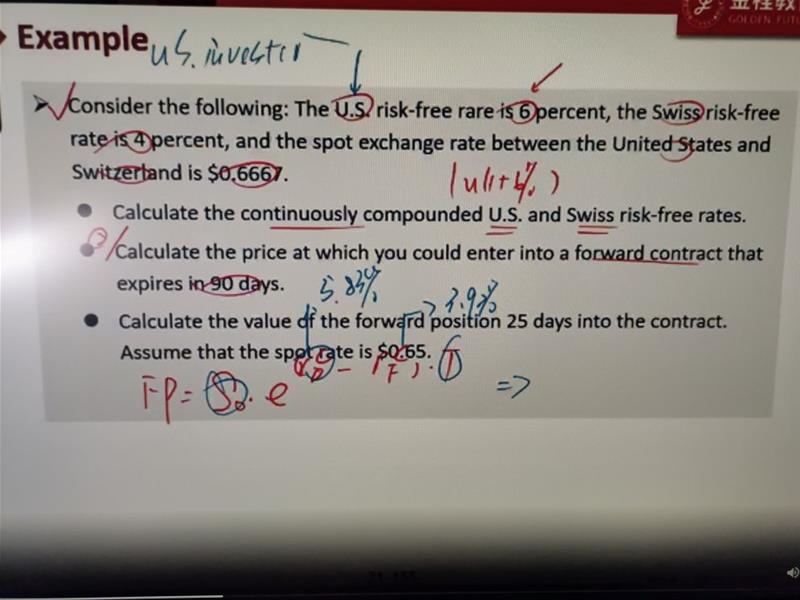 Example
U.S. investor
➤ Consider the following: The U.S. risk-free rare is 6 percent, the Swiss risk-free
rate is 4 percent, and the spot exchange rate between the United States and
Switzerland is $0.6667.
ln(1+6%)
● Calculate the continuously compounded U.S. and Swiss risk-free rates.
② Calculate the price at which you could enter into a forward contract that
expires in 90 days.
5.83%
3.92%
● Calculate the value of the forward position 25 days into the contract.
Assume that the spot rate is $0.65.
FP = S₀· e
⇒
GOLDEN FUTU